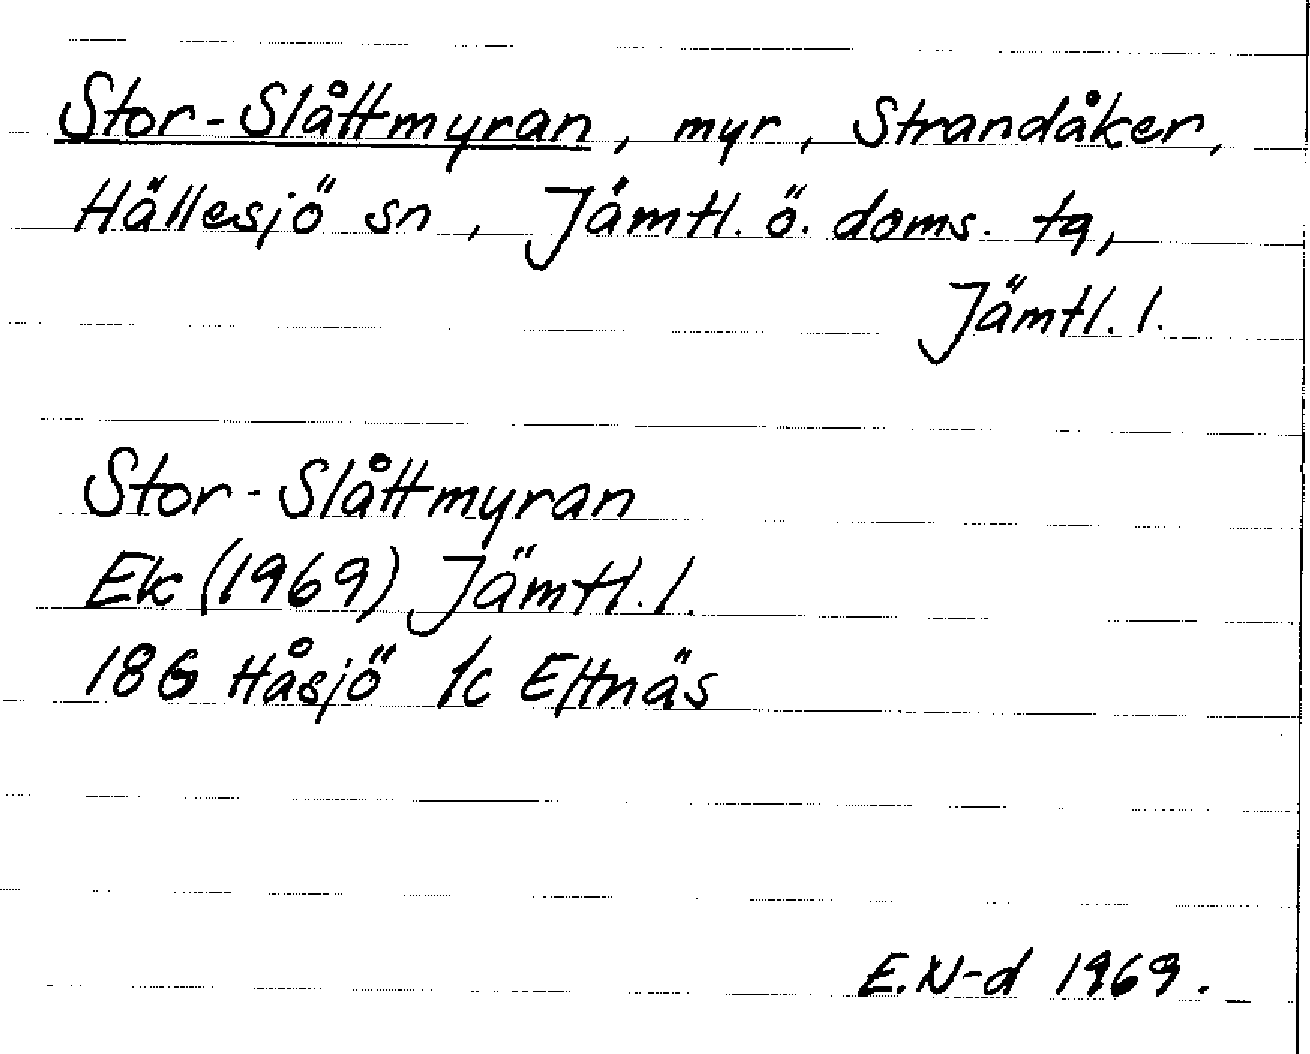 Stor-Slåttmyran, myr, Strandåker,
Hällesjö sn, Jämtl. ö. doms. tq,
Jämtl. l.
Stor-Slåttmyran
Ek (1969) Jämtl. l.
18G Håsjö 1c Ettnäs
E.N-d 1969.